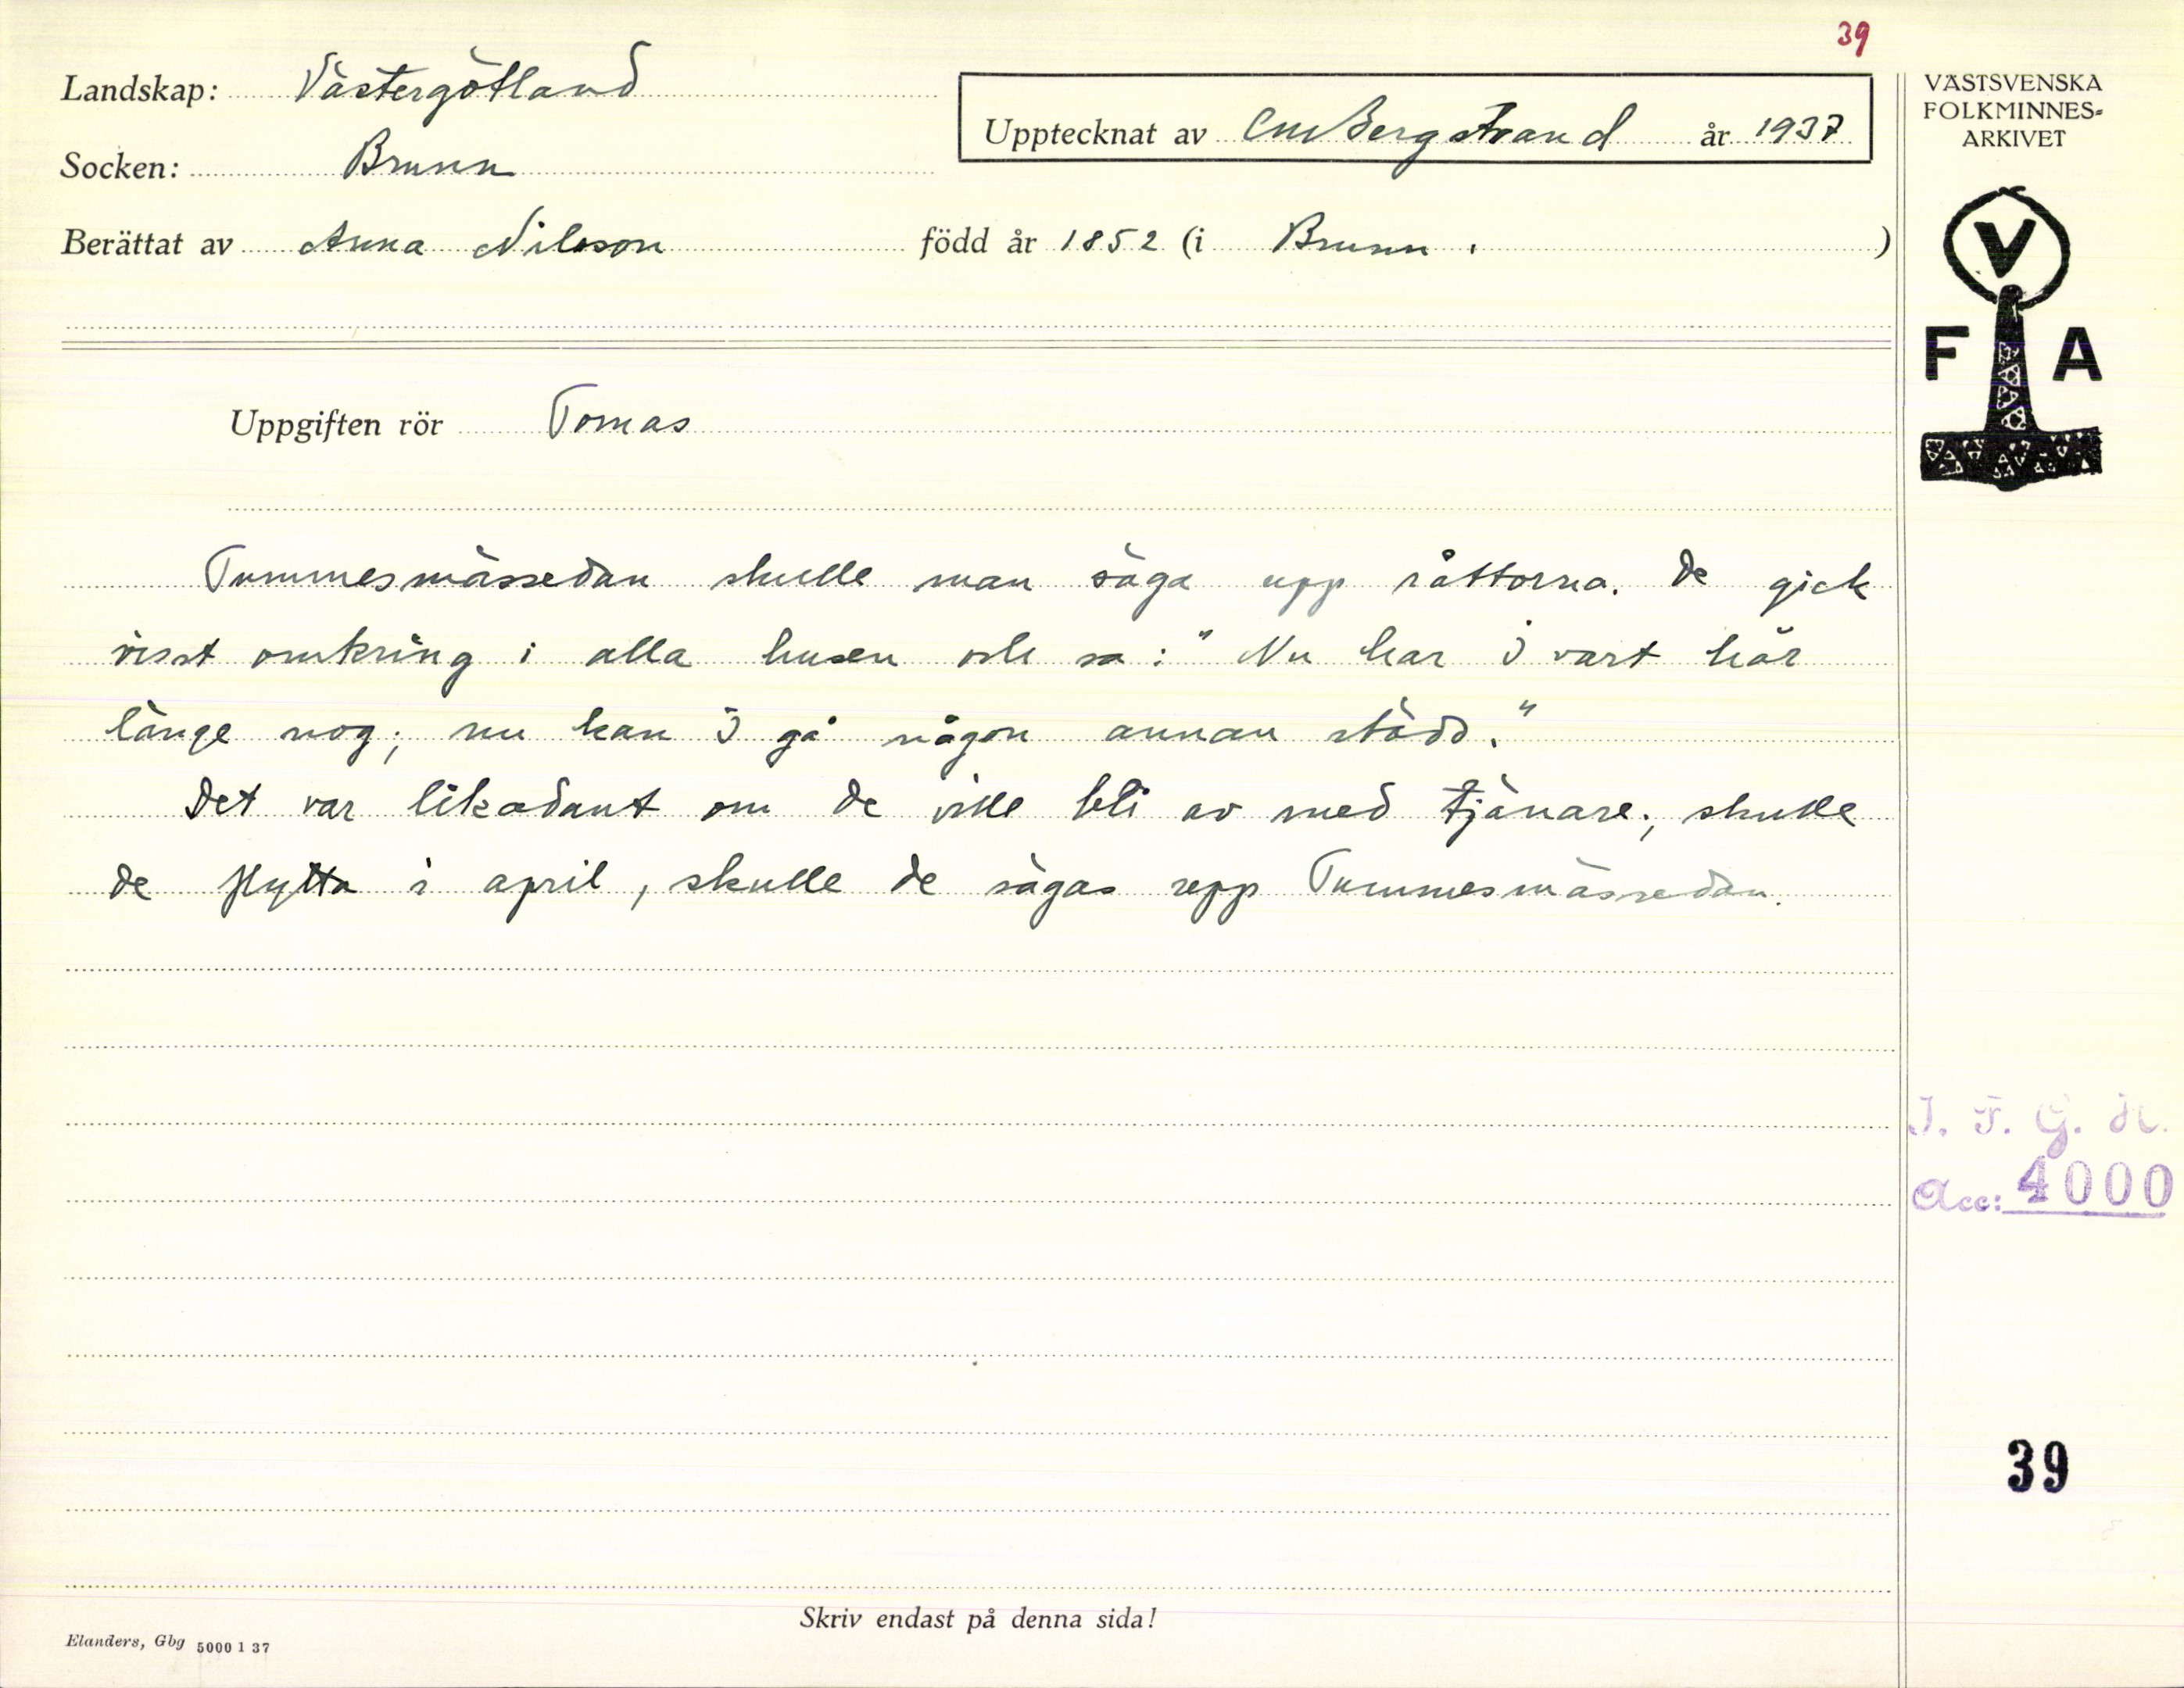 39
Landskap: Västergötland
Upptecknat av CM Bergstrand år 1937
Socken: Brunn
Berättat av Anna Nilsson född år 1852 (i Brunn. )
VÄSTSVENSKA
FOLKMINNES-
ARKIVET
V
F A
Uppgiften rör Tomas
Tummesmässedan skulle man säga upp råttorna. De gick
visst omkring i alla husen och sa: "Nu har I vart här
länge nog; nu kan I gå någon annan städd."
Det var likadant om de ville bli av med tjänare; skulle
de flytta i april, skulle de sägas upp Tummesmässedan.
I. F. G. H.
Acc: 4000
39
Skriv endast på denna sida!
Elanders, Gbg 5000 1 37